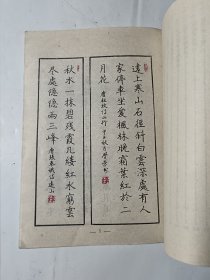 遠上寒山石徑斜白雲深處有人
家停車坐愛楓林晚霜葉紅於二
月花 唐杜牧 山行
秋水一抹碧殘霞幾縷紅水窮雲
尽處隱隱兩三峰
— 1 —